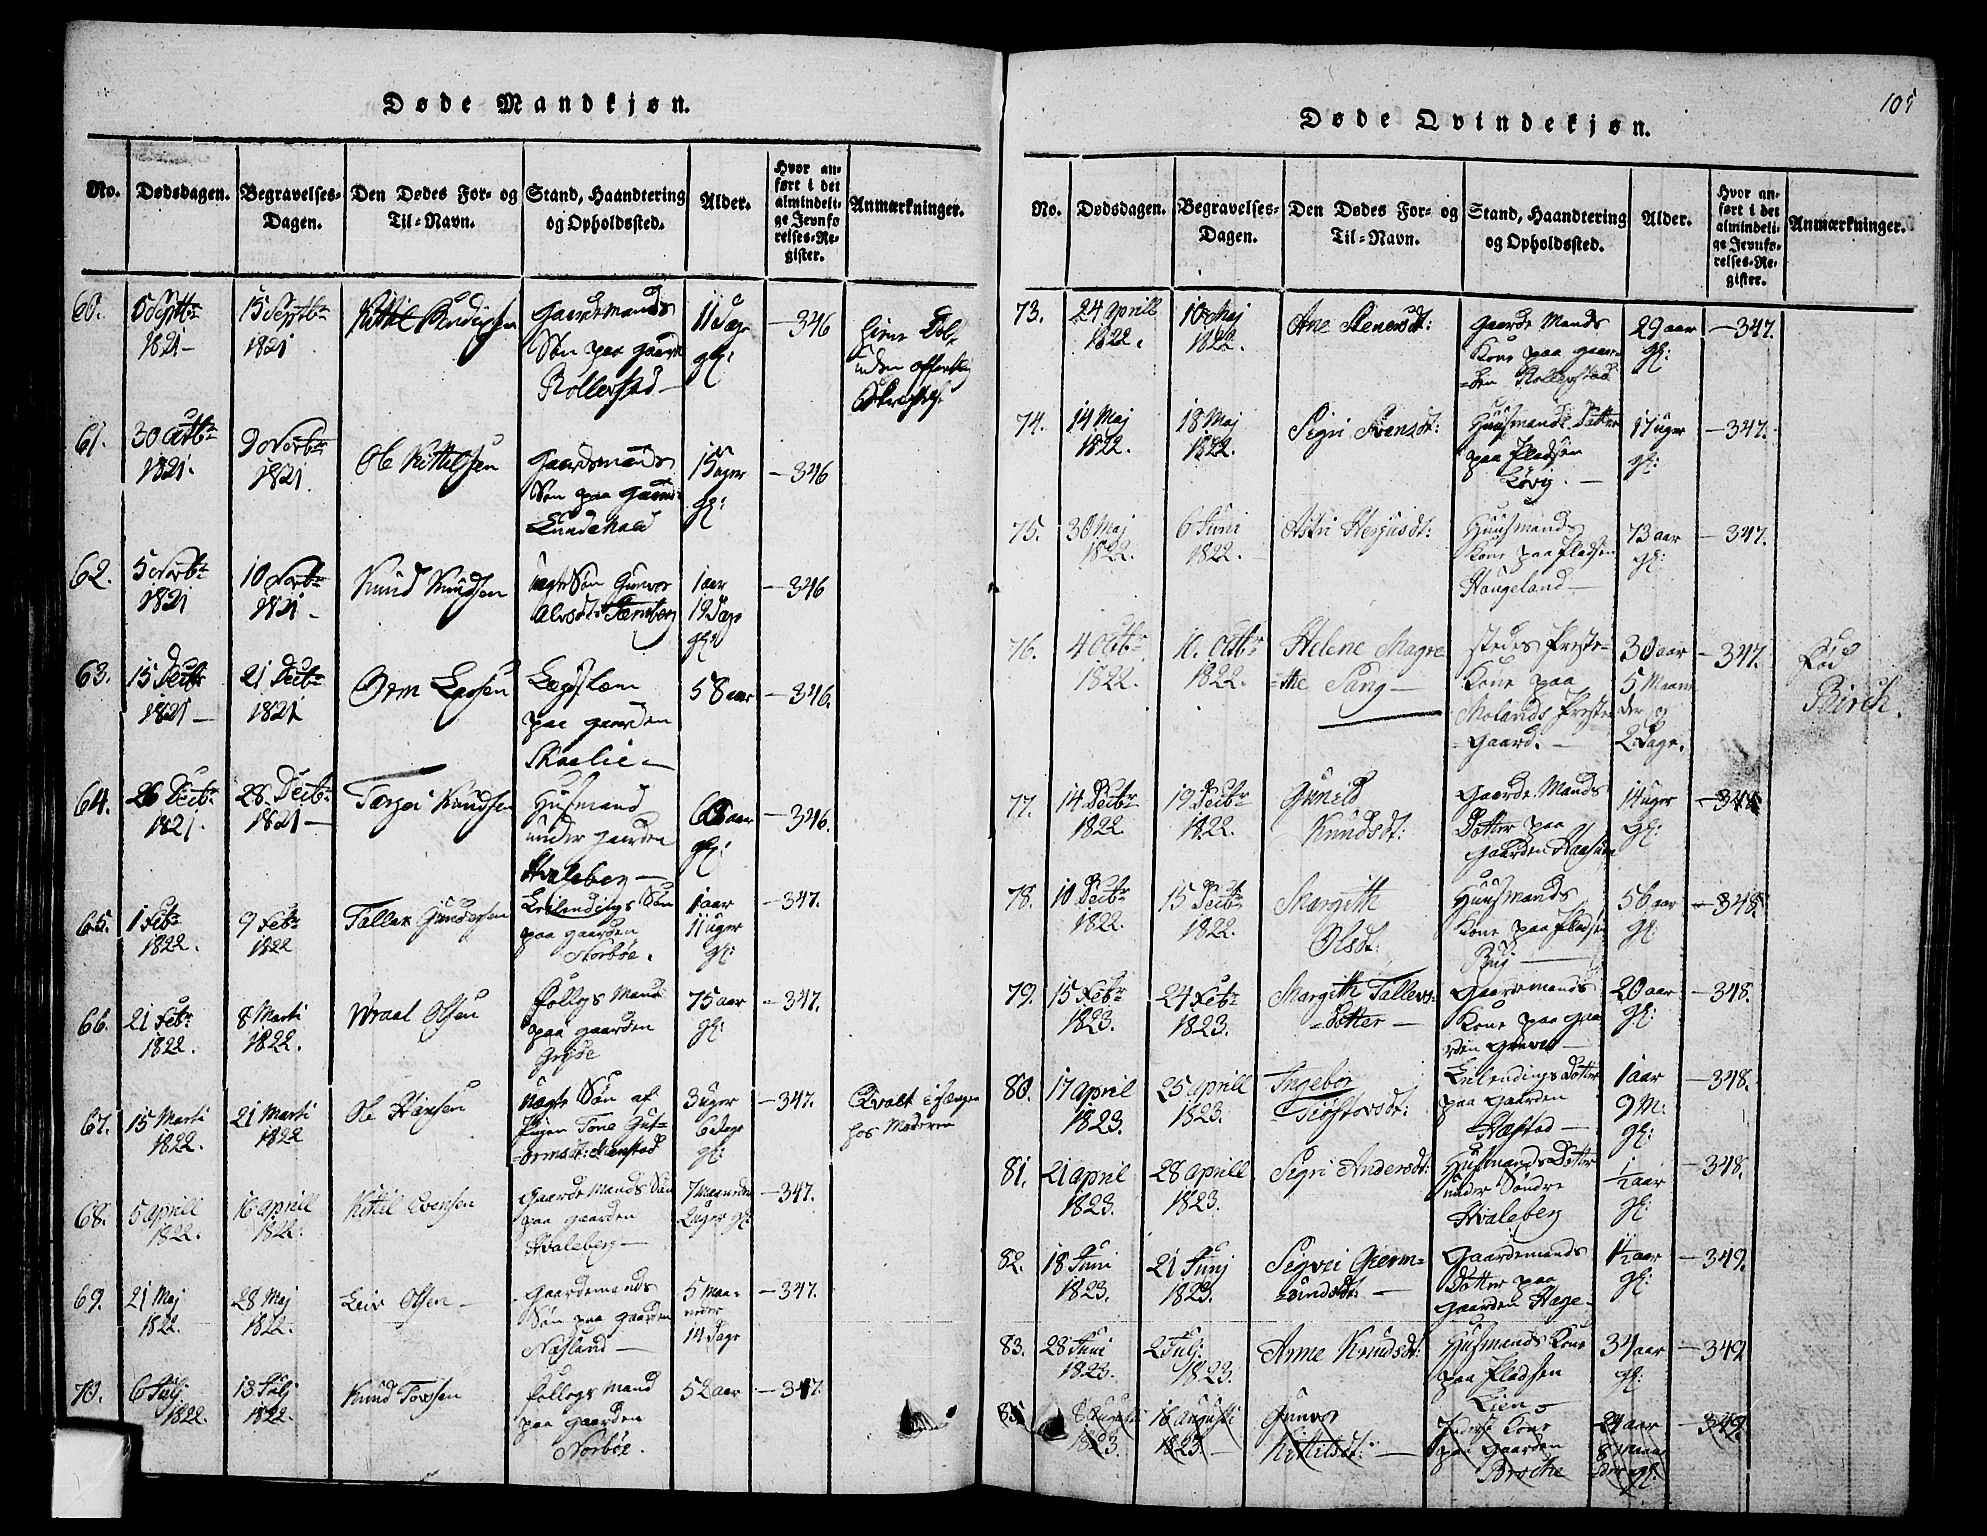 Døde Mandkjøn.
No.
Dødsdagen.
Begravelses-
Dagen.
Den Dødes For- og
Til-Navn.
Stand, Haandtering
og Opholdssted.
Alder.
Hvor an-
ført i det
almindeli-
ge Jevnfø
relses-Re-
gister.
Anmærkninger.
60.
5 Septbr
1821 -
15 Septbr
1821
Kittil
Gaardemands
Søn paa Gaard
Rollevstad -
11 Dage
gl:
- 346
uden offentlig
61.
30 Octbr
1821.
9 Novbr
1821.
Ole Kittilsen
Gaardemands
Søn paa Gaard
15 uger
gl:
- 346
62.
5 Novbr
1821
10 Novbr
1821 -
Knud Knudsen
uægte Søn Gunvor
1 aar
19 Dage
gl:
- 346
63.
15 Decbr
1821 -
21 Decbr
1821
Orm Larsen
Lægdslem
paa gaarden
58 aar
- 346.
64.
26 Decbr
1821.
28. Decbr
1821 -
Torjei Knudsen
Husmand
under gaarden
Hvaleberg -
aar
gl:
- 346.
65.
1 Febr
1822.
9 Febr
1822
Tallak Gundersen
Leilendings Søn
paa gaarden
Norbøe.
1 aar
11 uger
gl:
- 347.
66.
21 Febr
1822.
8 Marti
1822.
Wraal Olsen
Follogs Mand
paa gaarden
75 aar
gl:
- 347.
67.
15 Marti
1822.
21 Marti
1822
Ole Hansen
uægte Søn af
Pigen Tone Gut-
3 uger
6 Dage
gl:
- 347.
Qvalt i Sengen
hos Moderen
68.
5 Aprill
1822.
16 Aprill
1822.
Kittil Evensen
Gaarde Mands Søn
paa gaarden
Hvaleberg -
7 maaneder
2 uger gl:
- 347.
69.
21 Maj
1822.
28 Maj
1822.
Leiv Olsen -
Gaardemands
Søn paa gaarden
Næsland -
5 Maa-
neder
14 Dage
- 347.
70.
6 Julj
1822.
13 Julj
1822.
Knud
Follogs Mand
paa gaarden
Norbøe.
52 aar
- 347.
105
Døde Qvindekjøn.
No.
Dødsdagen.
Begravelses-
Dagen.
Den Dødes For- og
Til-Navn.
Stand, Haandtering
og Opholdssted.
Alder.
Hvor an-
ført i det
almindeli-
ge Jevnfø-
relses-Re-
gister.
Anmærkninger.
73.
24 Aprill
1822.
10 Maj
1822.
Ane Stenersdt:
Gaarde Mands
Kone paa gaar-
=den Rollevstad
29 aar
gl:
- 347.
74.
14 Maj
1822.
18 Maj
1822.
Sigri Svensdt:
Huusmands Datter
paa Pladsen
17 uger
gl:
- 347.
75.
30 Maj
1822.
6 Juni
1822.
Astri Herjusdt:
Huusmands
Kone paa Pladsen
Haugeland -
73 aar
gl:
- 347.
76.
4 Octbr
1822.
10. Octbr
1822.
Helene Magre
=the Sang -
stedes Præste-
Kone paa
Molands Præste
=gaard. -
30 aar
5 Maane
der og
2 Dage.
- 347.
Fød
Birch.
77.
14 Decbr
1822.
19 Decbr
1822.
Guneld
Knudsdt:
Gaarde Mands
Datter paa
Gaarden
14 uger
gl:
- 348
78.
10 Decbr
1822.
15 Decbr
1822.
Margith
Olsdt:
Huusmands
Kone paa Pladsen
56 aar
gl:
- 348.
79.
15 Febr
1823.
24 Febr
1823.
Margith Tallevs-
=Datter -
Gaardemands
Kone paa Gaa
rden
20 aar
gl:
- 348.
80.
17 April
1823.
25 Aprill
1823.
Ingebor
Leilendings Datter
paa Gaarden
1 aar
9 M:
gl:
- 348.
81.
21 April
1823.
28 Aprill
1823.
Sigri Andersdt:
Husmands Datter
under Søndre
Hvaleberg
1/2 aar
gl:
- 348.
82.
18 Juni
1823.
21 Junj
1823.
Gaardemands
Datter paa
Gaarden Hage-
1 1/2 aar
gl:
- 349.
83.
28 Juni
1823.
2 Julj.
1823.
Anne Knudsdt:
Husmands Kone
paa Pladsen
Lien -
34 aar
gl:
- 349
8 Augusti
1823.
16 Augusti
1823 -
Gunvor
Kittilsdt: -
Kone
paa Gaarden
24 aar
8 Maane
der gl:
- 349.